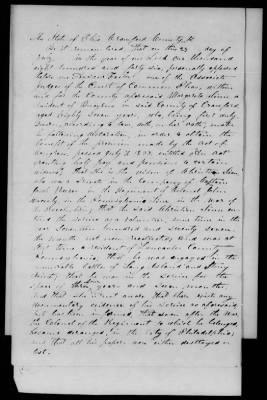 The State of Ohio Crawford County, ss
Be it remembered, that on this 23 day of
July in the year of our Lord one thousand
eight hundred and thirty six, personally appeared
before me one of the Associate
Judges of the Court of Common Pleas, within
and for the County aforesaid Margareta
resident of Bucyrus in said County of Crawford
aged eighty seven years, who, being first duly
sworn according to law, doth on her oath, make
the following declaration, in order to obtain the
benefit of the provision made by the act of
Congress, passed July 4, 1836, entitled "An Act
granting half pay and pensions to certain
widows; That she is the widow of Christian
who was a in the Company of Captain
in the Regiment of Colonel
in the Pennsylvania line, in the war of
the Revolution; that the said Christian
the service as a volunteer some time in the
year Seventeen hundred and seventy seven,
the month not now recollected and was at
that time a resident of Lancaster County
Pennsylvania, that he was engaged in the
memorable battles of Long Island and Stony
Point; that he was in the service for the
span of three years and seven months,
and that she is not aware that there exist any
documentary evidence of his service as aforesaid,
but has been informed, that soon after the war,
the Colonel of the Regiment to which he belonged,
became deranged, in the City of Philadelphia,
and that all his papers were either destroyed or
lost.